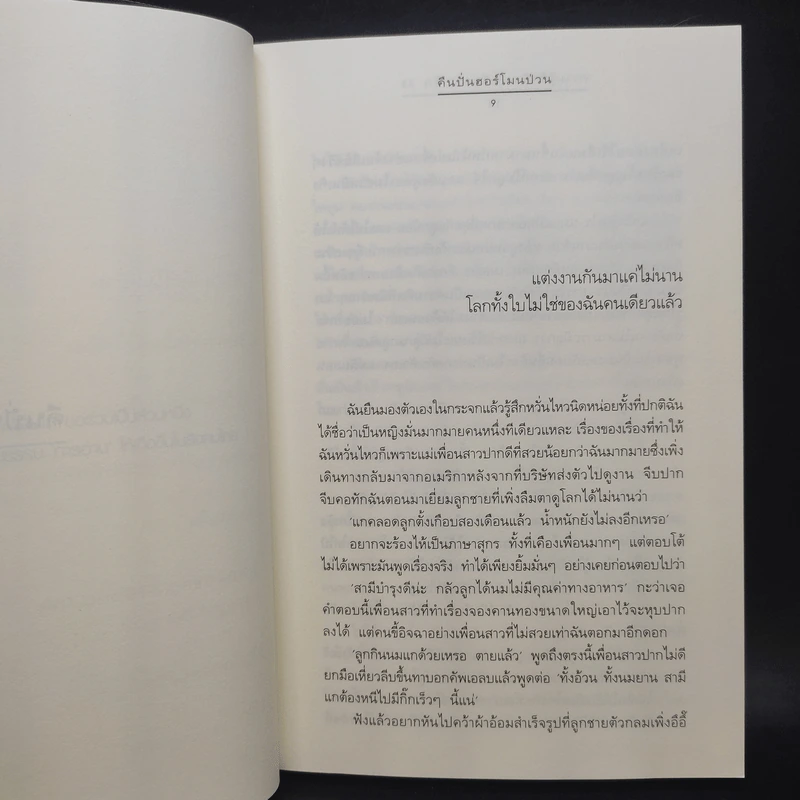 คืนปั่นฮอร์โมนป่วน
9
แต่งงานกันมาแค่ไม่นาน
โลกทั้งใบไม่ใช่ของฉันคนเดียวแล้ว
ฉันยืนมองตัวเองในกระจกแล้วรู้สึกหวั่นไหวนิดหน่อยทั้งที่ปกติฉัน
ได้ชื่อว่าเป็นหญิงมั่นมากมายคนหนึ่งทีเดียวแหละ เรื่องของเรื่องที่ทำให้
ฉันหวั่นไหวก็เพราะแม่เพื่อนสาวปากดีที่สวยน้อยกว่าฉันมากมายซึ่งเพิ่ง
เดินทางกลับมาจากอเมริกาหลังจากที่บริษัทส่งตัวไปดูงาน จีบปาก
จีบคอทักฉันตอนมาเยี่ยมลูกชายที่เพิ่งลืมตาดูโลกได้ไม่นานว่า
'แกคลอดลูกตั้งเกือบสองเดือนแล้ว น้ำหนักยังไม่ลงอีกเหรอ'
อยากจะร้องไห้เป็นภาษาสุกร ทั้งที่เคืองเพื่อนมากๆ แต่ตอบโต้
ไม่ได้เพราะมันพูดเรื่องจริง ทำได้เพียงยิ้มมั่นๆ อย่างเคยก่อนตอบไปว่า
'สามีบำรุงดีน่ะ กลัวลูกได้นมไม่มีคุณค่าทางอาหาร' กะว่าเจอ
คำตอบนี้เพื่อนสาวที่ทำเรื่องจองคานทองขนาดใหญ่เอาไว้จะหุบปาก
ลงได้ แต่คนขี้อิจฉาอย่างเพื่อนสาวที่ไม่สวยเท่าฉันตอกมาอีกดอก
'ลูกกินนมแกด้วยเหรอ ตายแล้ว' พูดถึงตรงนี้เพื่อนสาวปากไม่ดี
ยกมือเหี่ยวลีบขึ้นทาบอกคัพเอลบแล้วพูดต่อ 'ทั้งอ้วน ทั้งนมยาน สามี
แกต้องหนีไปมีกิ๊กเร็วๆ นี้แน่'
ฟังแล้วอยากหันไปคว้าผ้าอ้อมสำเร็จรูปที่ลูกชายตัวกลมเพิ่งอึอี๊